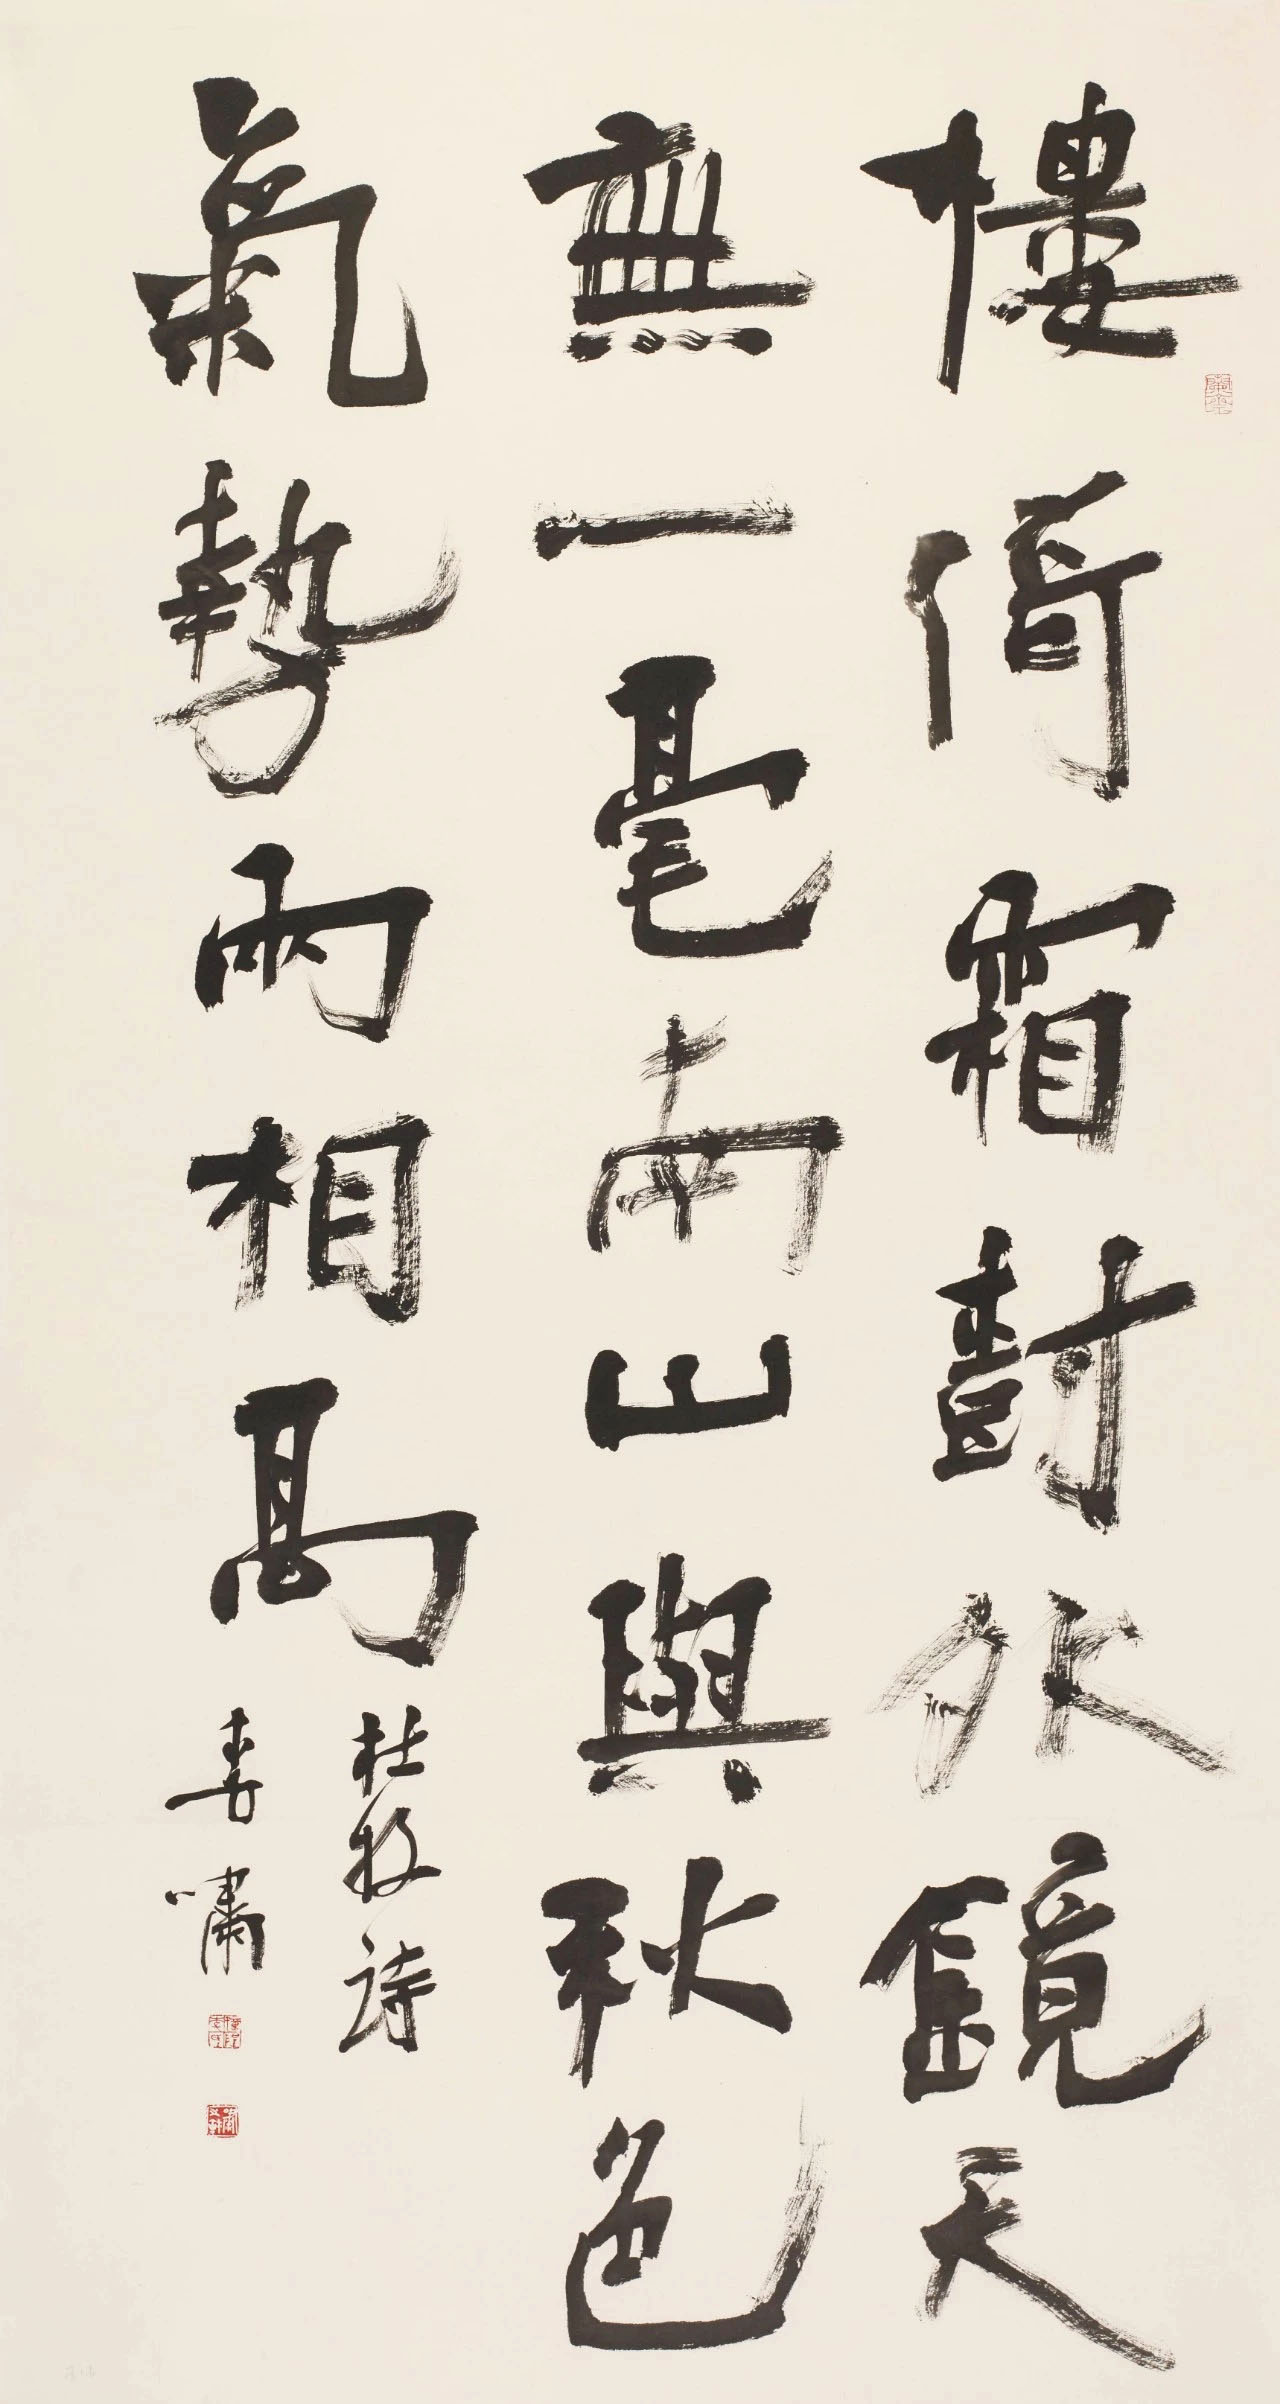 樓倚霜樹外鏡天
無一毫南山與秋色
氣勢兩相高
杜牧詩
春嘯